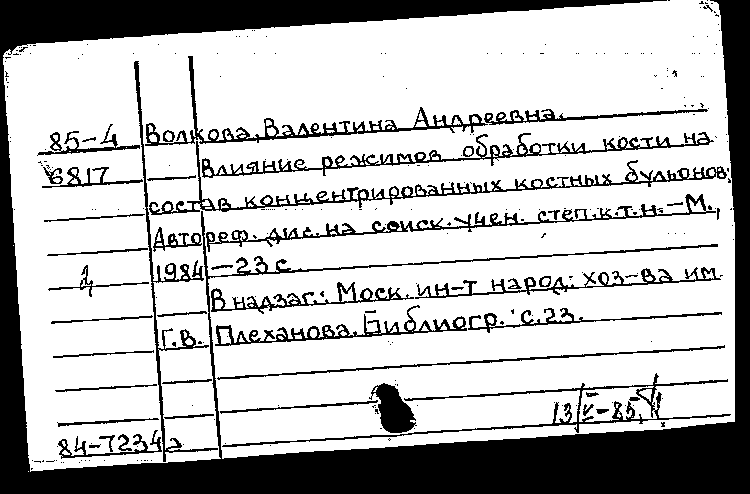 85-4 Волкова, Валентина Андреевна.
6817 Влияние режимов обработки кости на
состав концентрированных костных бульонов:
Автореф. дис. на соиск. учен. степ. к.т.н. – М.,
1984 – 23 с.
В надзаг.: Моск. ин-т народ. хоз-ва им.
Г.В. Плеханова. Библиогр.: с. 23.
13/V-85
84-7234а